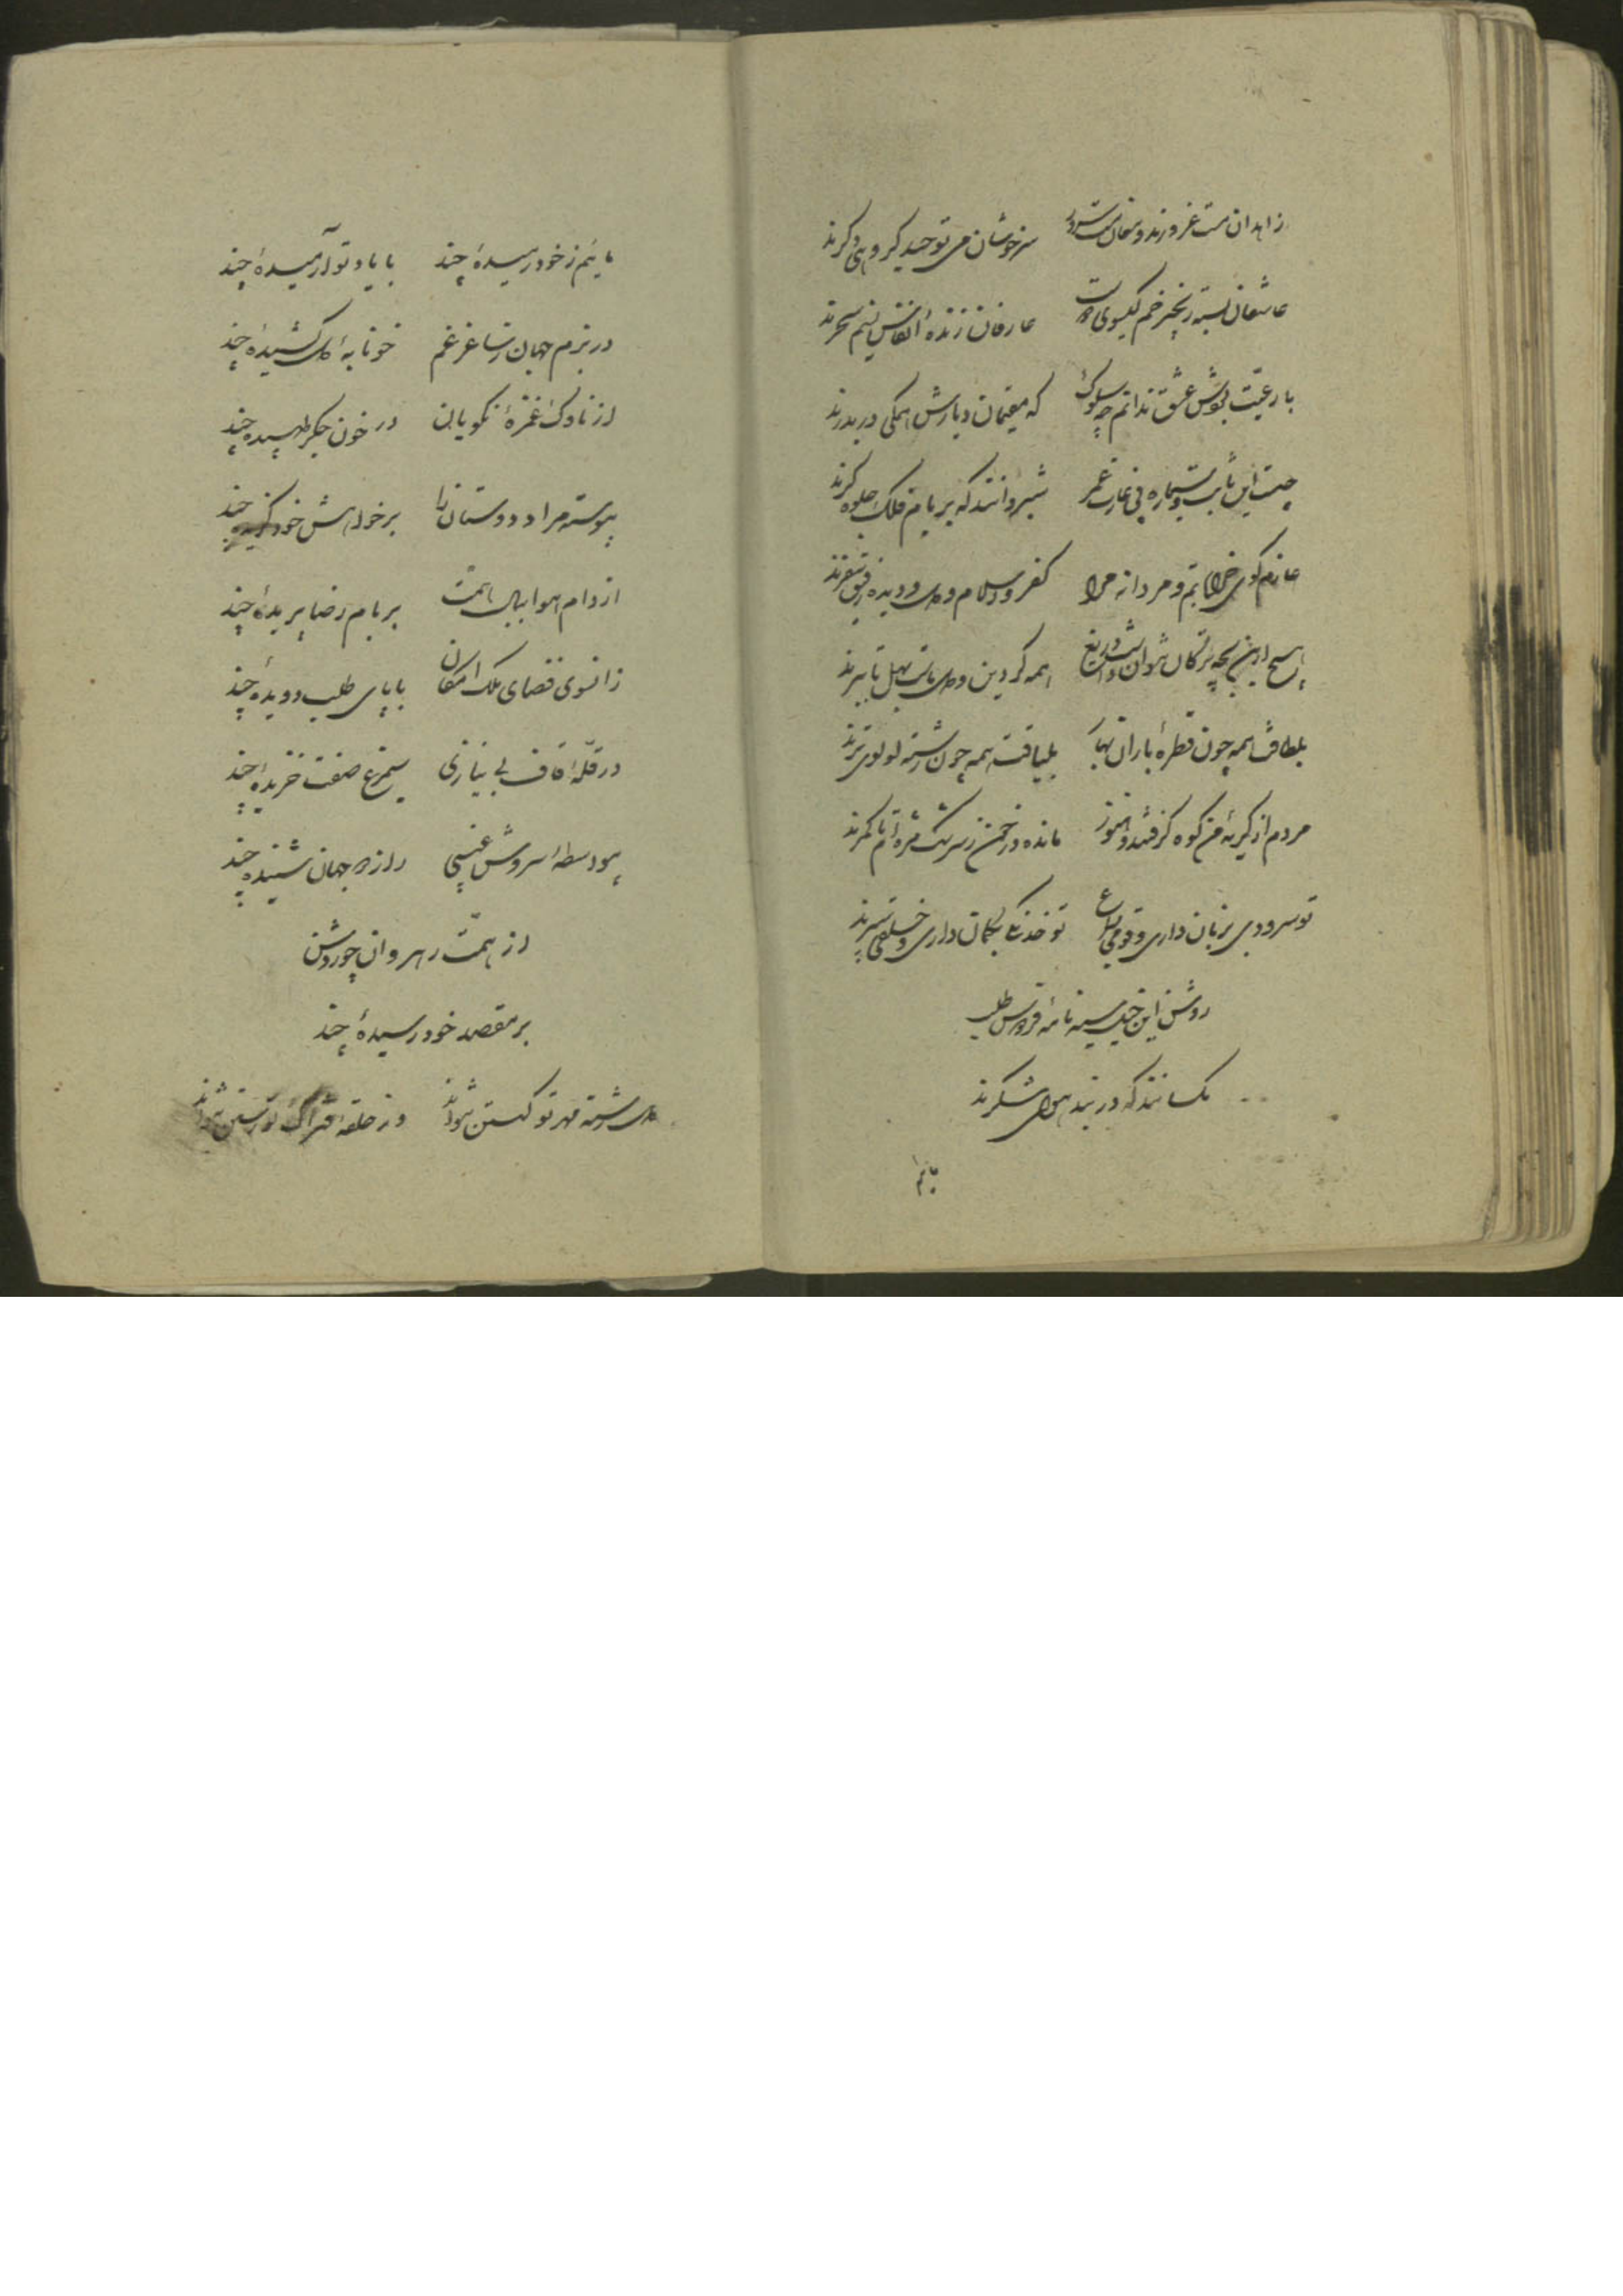 زاهدان مست غرورند و مغان مست سرور سرخوشان می توحید گروهی دگرند
عاشقان بسته زنجیر خم گیسوی دوست عارفان زنده انفاس نسیم سحرند
با رعیت بوش عشق ندانم چه سلوک که مقیمان دیارش همگی دربدرند
چیست این ثابت و سیاره پی غارت عمر شبروانند که بر بام فلک جلوه گرند
عازم کوی خراباتم و مردانه مرا کفر و اسلام و دل و دیده رفیق سفرند
هیچ ازین بچه ترکان نتوان داشت دریغ همه گر دین و دل تست بهل تا ببرند
بلطافت همه چون قطرهٔ باران بهار بلیاقت همه چون رشته لولوی ترند
مردم از گریهٔ من کوه گرفتند و هنوز مانده در خمن ز سرشک مژه ام تا کمرند
تو سرودی بزبان داری و قومی بسماع تو خدنگی بکمان داری و خلقی سپرند
روشن این چین سینه نامه فردوس طلب
مگسانند که در بند هوای شکرند
مائیم
مائیم ز خود رمیدهٔ چند با یاد تو آرمیدهٔ چند
در بزم جهان ز ساغر غم خونابهٔ دل کشیدهٔ چند
از ناوک غمزهٔ نکویان در خون جگر طپیدهٔ چند
پیوسته مراد دوستان را بر خواهش خود گزیدهٔ چند
از دام هوا ببال همت بر بام رضا پریدهٔ چند
زانسوی فضای ملک امکان با پای طلب دویدهٔ چند
در قلهٔ قاف بی نیازی سیمرغ صفت خزیدهٔ چند
بیواسطهٔ سروش غیبی راز دو جهان شنیدهٔ چند
از همت رهروان چو روشن
بر مقصد خود رسیدهٔ چند
دل رشته مهر تو گسستن نتواند وز حلقهٔ فتراک تو رستن نتواند